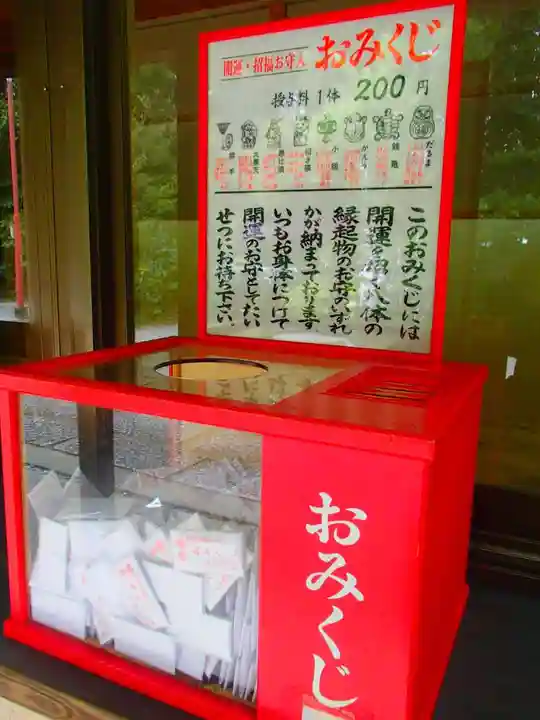 開運・招福お守入
おみくじ
授与料 1体 200円
だるま
銭亀
かえる
小槌
招き猫
大黒天
熊手
このおみくじには
開運を招く八体の
縁起物のお守のいずれ
かが納まっております
いつもお身体につけて
開運のお守としてたい
せつにお持ち下さい。
おみくじ